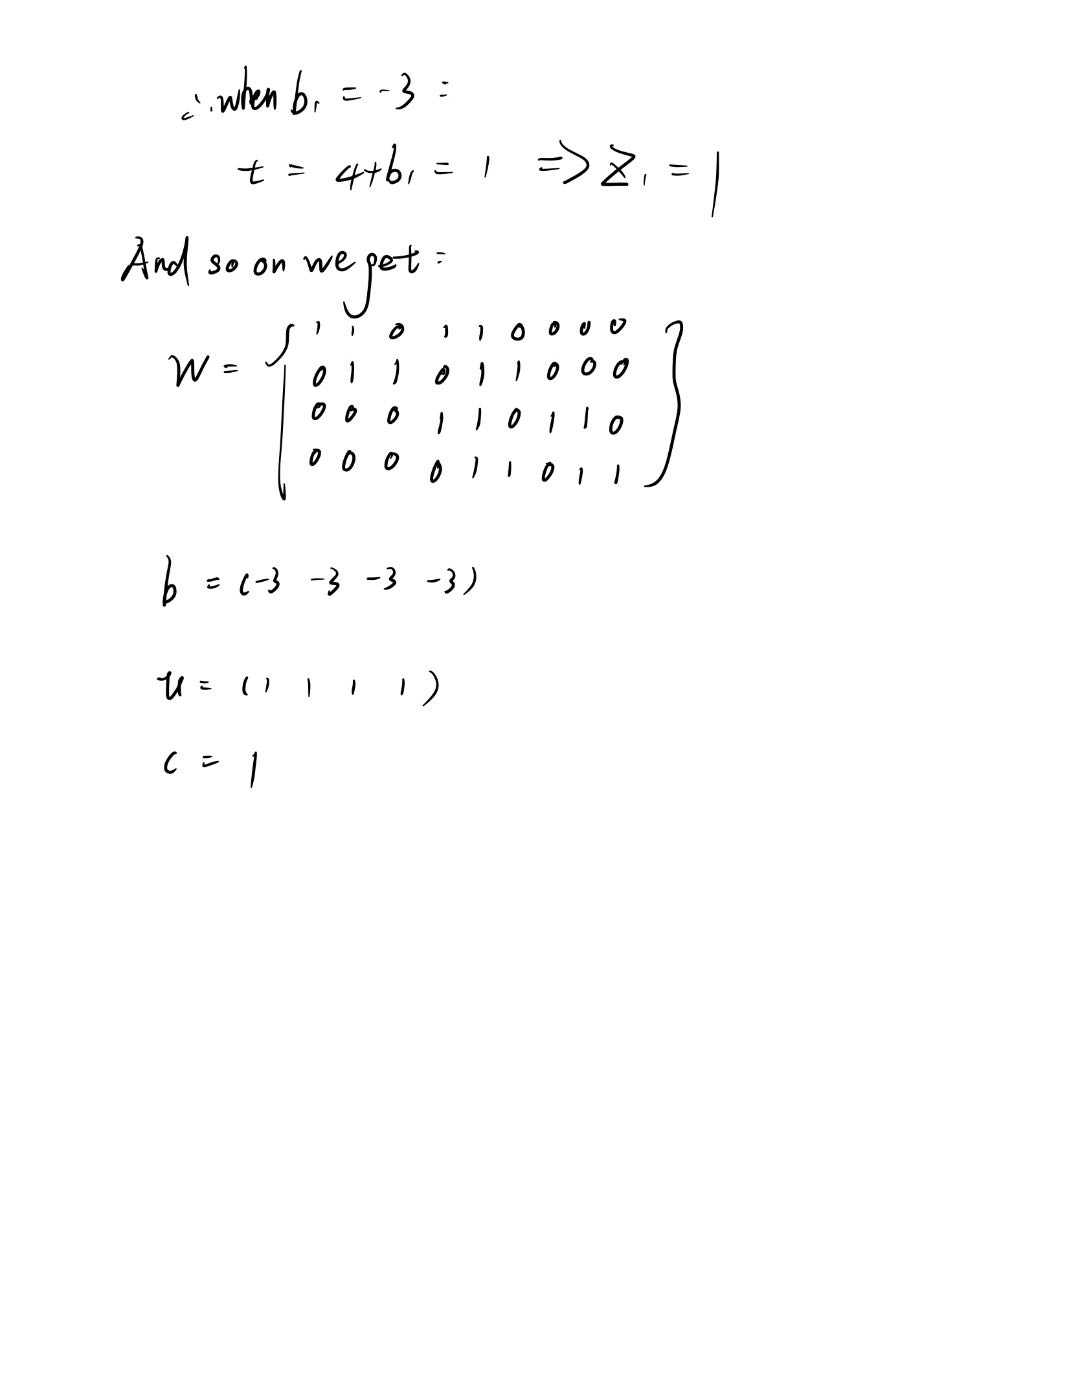 ∴ when b₁ = -3 :
t = 4+b₁ = 1 => z₁ = 1
And so on we get :
W =
1 1 0 1 1 0 0 0 0
0 1 1 0 1 1 0 0 0
0 0 0 1 1 0 1 1 0
0 0 0 0 1 1 0 1 1
b = (-3 -3 -3 -3)
u = (1 1 1 1)
c = 1